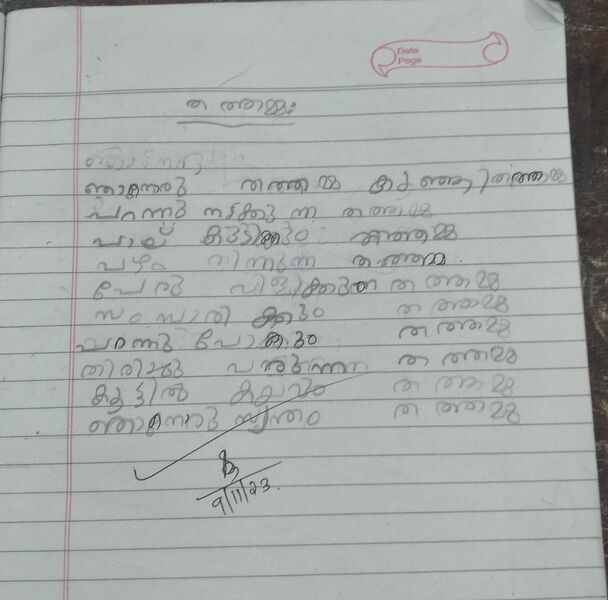 Date
Page
തത്തമ്മ
ഞാനൊരു തത്തമ്മ കുഞ്ഞിതത്തമ്മ
പറന്നു നടക്കുന്ന തത്തമ്മ
പാല് കുടിക്കും തത്തമ്മ
പഴം തിന്നുന്ന തത്തമ്മ
പേരു വിളിക്കുന്ന തത്തമ്മ
സംസാരിക്കും തത്തമ്മ
പറന്നു പോകും തത്തമ്മ
തിരിച്ചു വരുന്ന തത്തമ്മ
കൂട്ടിൽ കയറും തത്തമ്മ
ഞാനൊരു സ്വന്തം തത്തമ്മ
9/11/23.